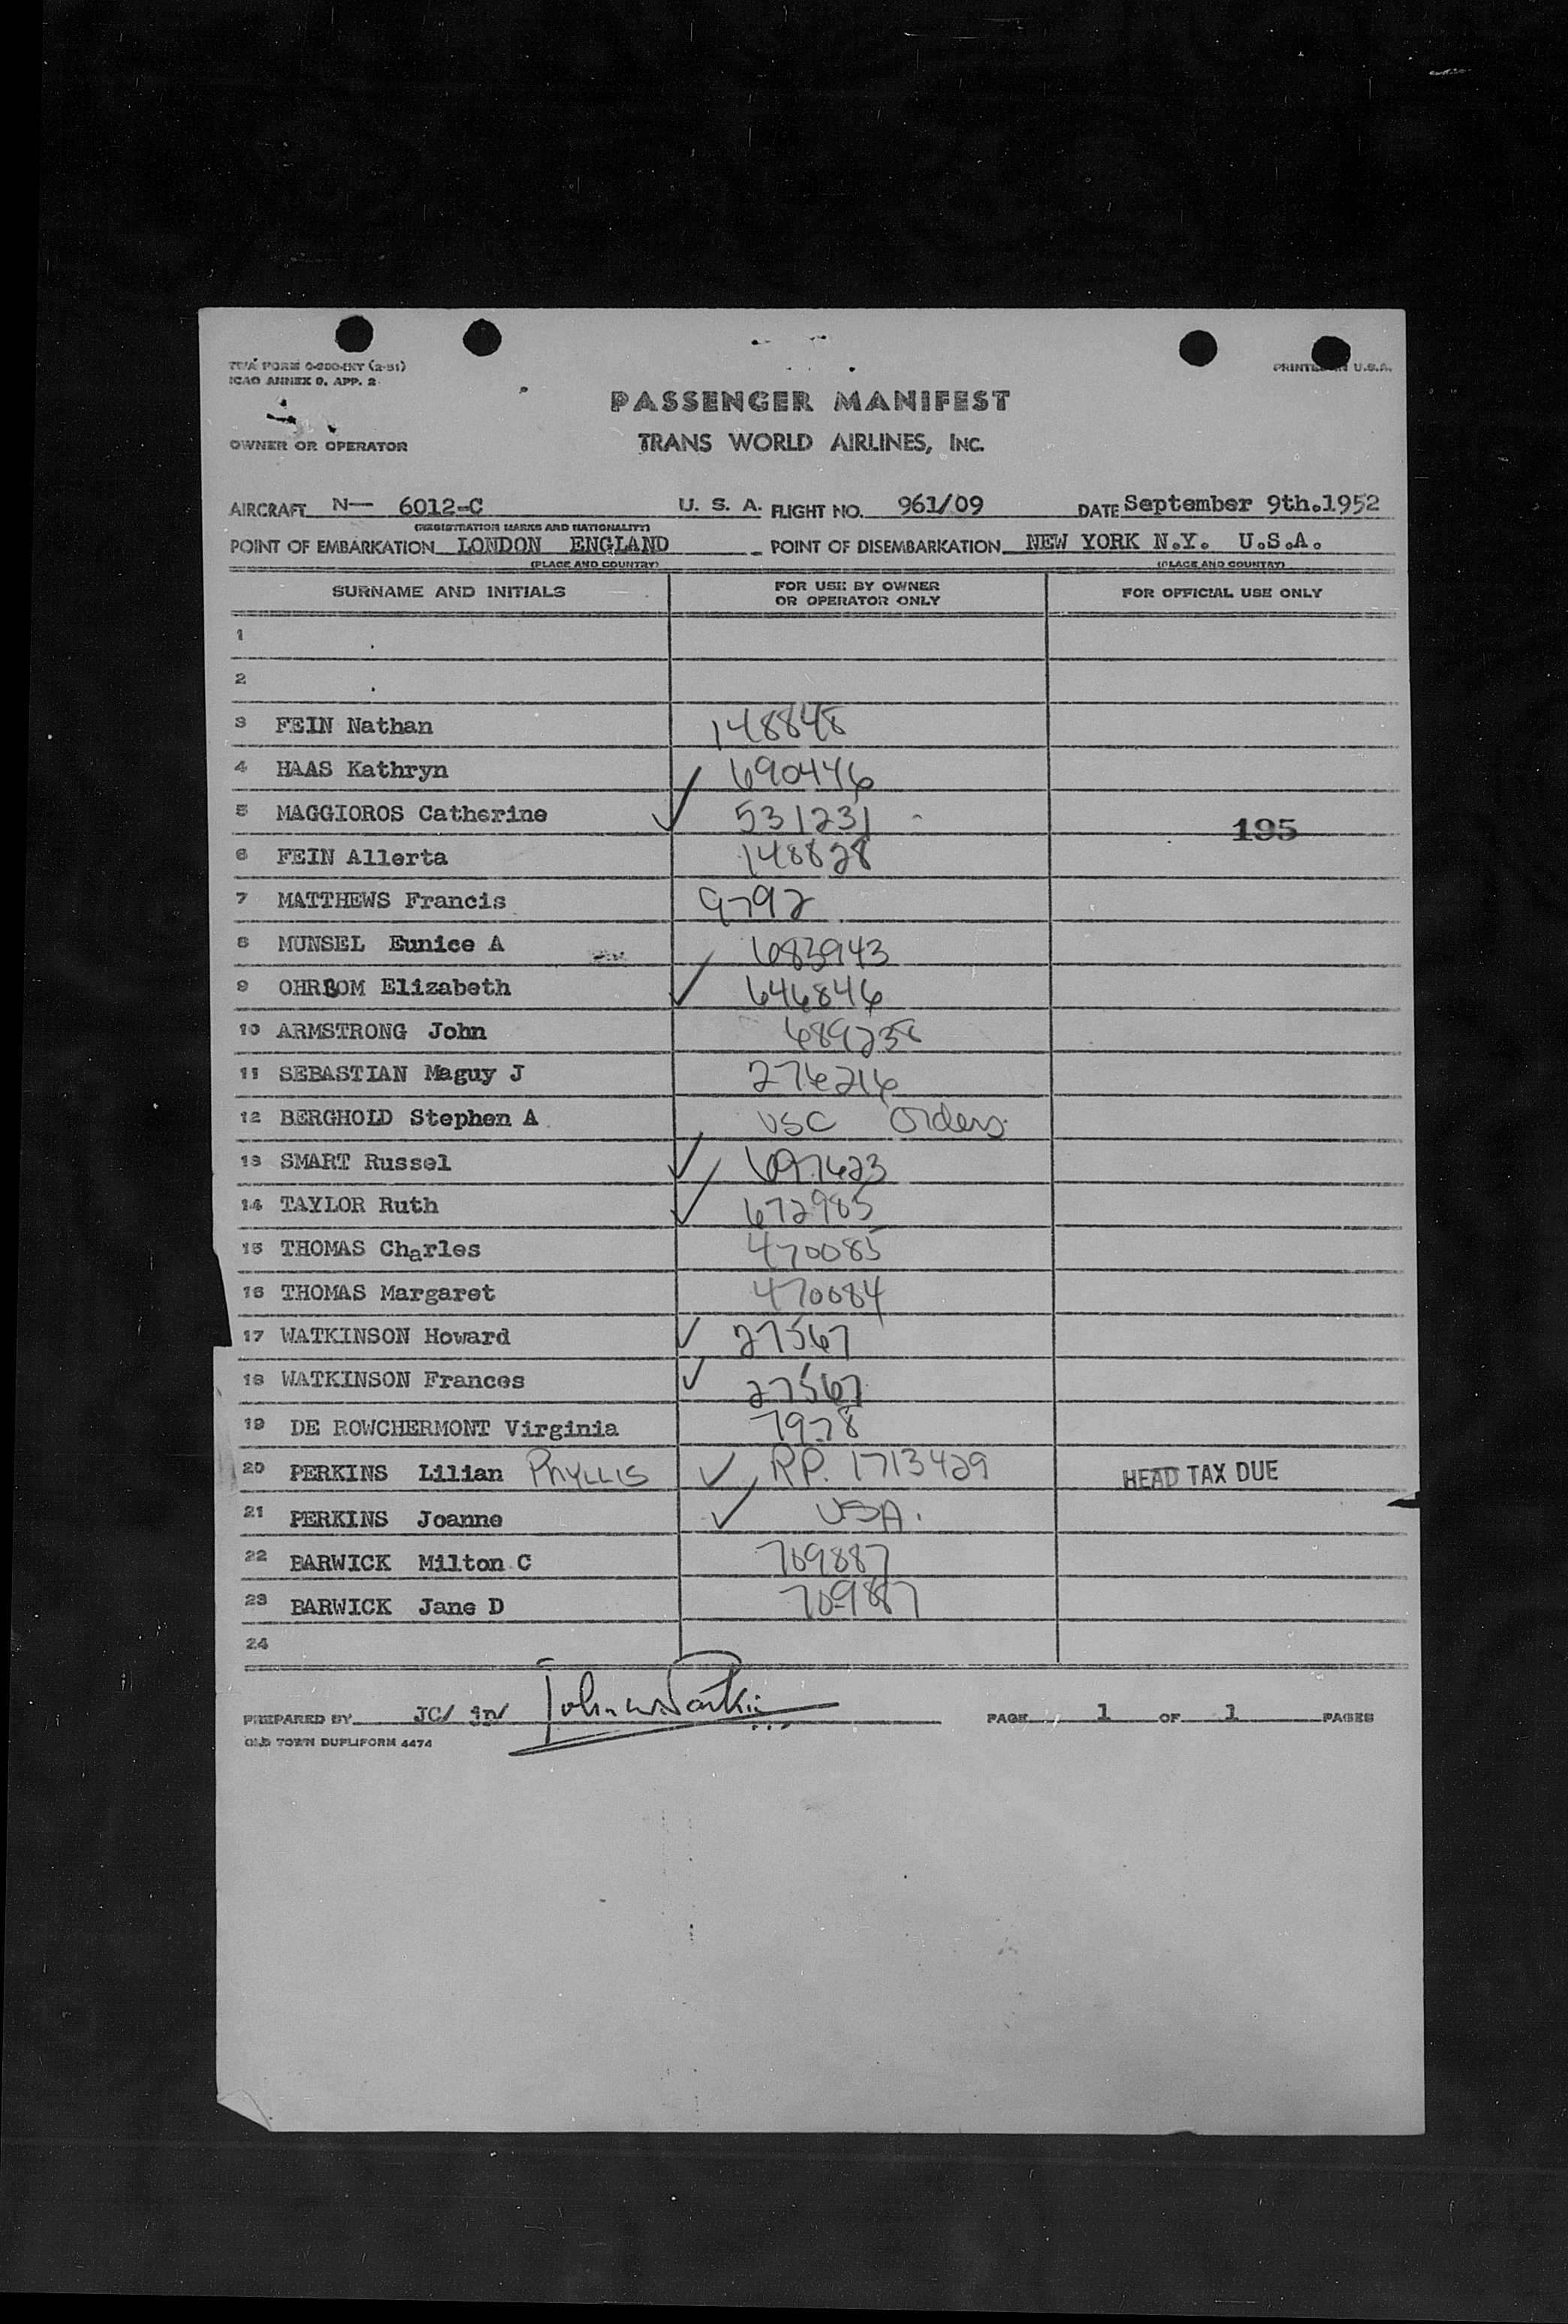 TWA FORM O-800-INT (2-51)
ICAO ANNEX 9, APP. 2
PRINTED IN U.S.A.
PASSENGER MANIFEST
OWNER OR OPERATOR TRANS WORLD AIRLINES, INC.
AIRCRAFT N— 6012-C U. S. A. FLIGHT NO. 961/09 DATE September 9th.1952
(REGISTRATION MARKS AND NATIONALITY)
POINT OF EMBARKATION LONDON ENGLAND POINT OF DISEMBARKATION NEW YORK N.Y. U.S.A.
(PLACE AND COUNTRY) (PLACE AND COUNTRY)
SURNAME AND INITIALS FOR USE BY OWNER OR OPERATOR ONLY FOR OFFICIAL USE ONLY
1
2
3 FEIN Nathan 148848
4 HAAS Kathryn 690446
5 MAGGIOROS Catherine ✓ 531231 195
6 FEIN Allerta 148828
7 MATTHEWS Francis 9792
8 MUNSEL Eunice A 683943
9 OHRBOM Elizabeth ✓ 646846
10 ARMSTRONG John 689238
11 SEBASTIAN Maguy J 276216
12 BERGHOLD Stephen A USC Orders
13 SMART Russel ✓ 697623
14 TAYLOR Ruth ✓ 672985
15 THOMAS Charles 470085
16 THOMAS Margaret 470084
17 WATKINSON Howard ✓ 27567
18 WATKINSON Frances ✓ 27567
19 DE ROWCHERMONT Virginia 7978
20 PERKINS Lilian PHYLLIS ✓ RP. 1713429 HEAD TAX DUE
21 PERKINS Joanne ✓ USA.
22 BARWICK Milton C 709887
23 BARWICK Jane D 709887
24
PREPARED BY JC/ jp/ John W. PAGE 1 OF 1 PAGES
OLD TOWN DUPLIFORM 4474